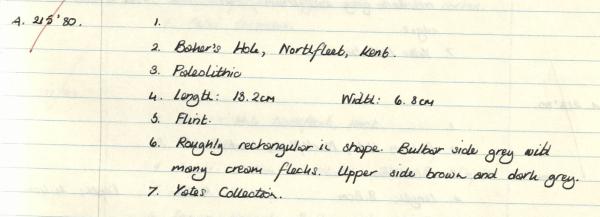 A. 215'80.
1.
2. Baker's Hole, Northfleet, Kent.
3. Paleolithic
4. Length: 18.2cm Width: 6.8cm
5. Flint.
6. Roughly rectangular in shape. Bulbar side grey with
many cream flecks. Upper side brown and dark grey.
7. Yates Collection.